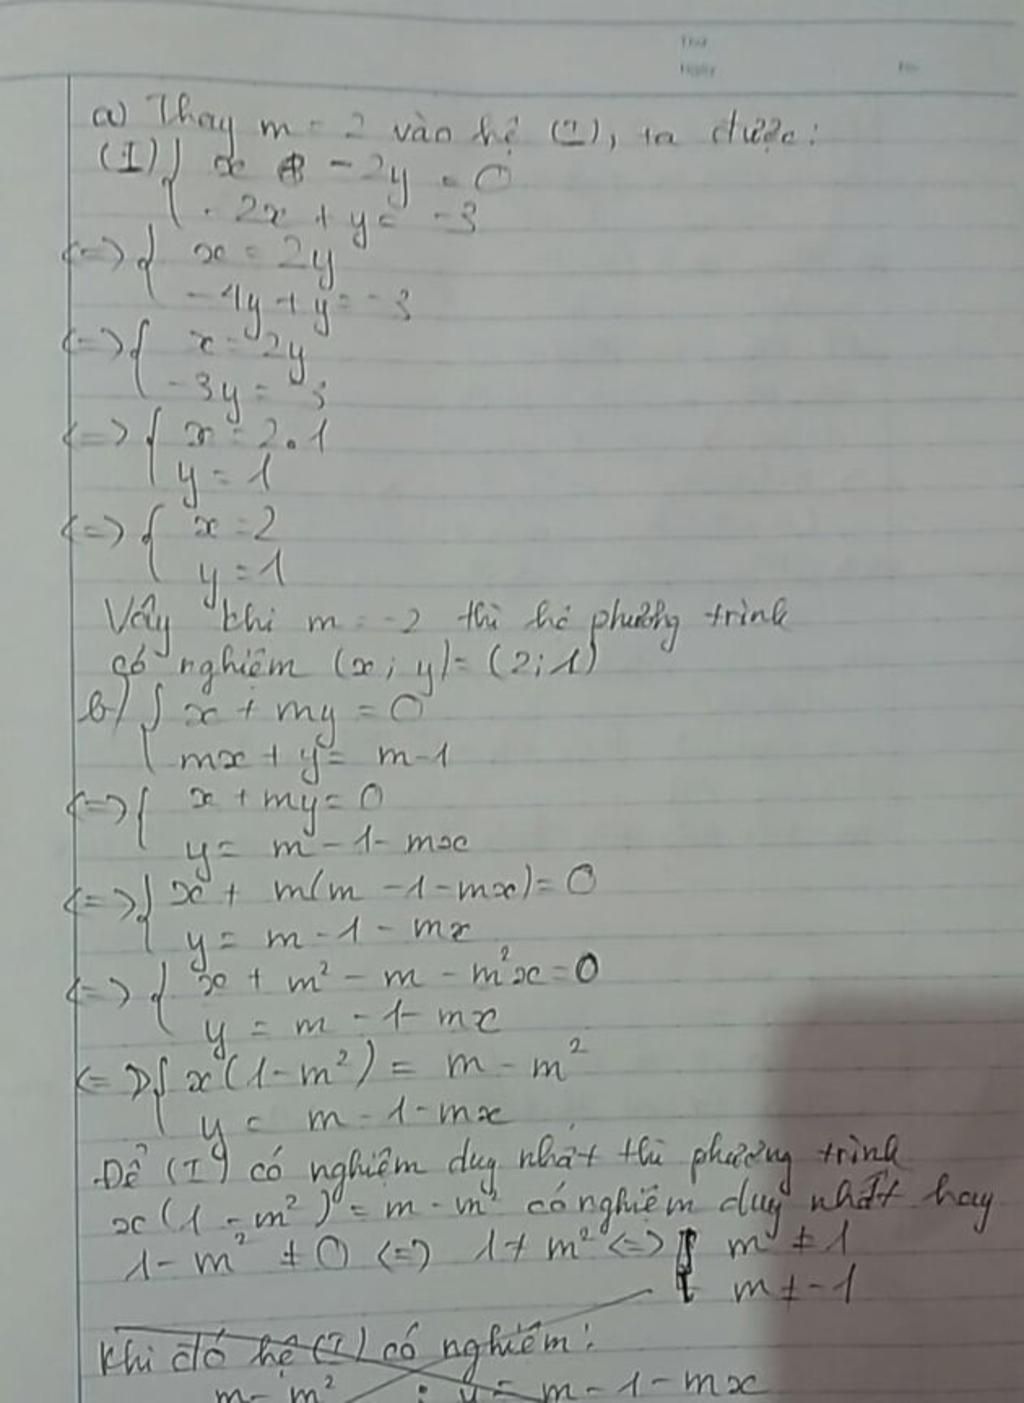 Thứ
Ngày
No
a) Thay m = -2 vào hệ (I), ta được:
(I) { x - 2y = 0
-2x + y = -3
<=> { x = 2y
-4y + y = -3
<=> { x = 2y
-3y = -3
<=> { x = 2.1
y = 1
<=> { x = 2
y = 1
Vậy khi m = -2 thì hệ phương trình
có nghiệm (x; y) = (2; 1)
b) { x + my = 0
mx + y = m - 1
<=> { x + my = 0
y = m - 1 - mx
<=> { x + m(m - 1 - mx) = 0
y = m - 1 - mx
<=> { x + m² - m - m²x = 0
y = m - 1 - mx
<=> { x(1 - m²) = m - m²
y = m - 1 - mx
Để (I) có nghiệm duy nhất thì phương trình
x(1 - m²) = m - m² có nghiệm duy nhất hay
1 - m² ≠ 0 <=> 1 ≠ m² <=> { m ≠ 1
m ≠ -1
Khi đó hệ (I) có nghiệm:
m - m² ; y = m - 1 - mx